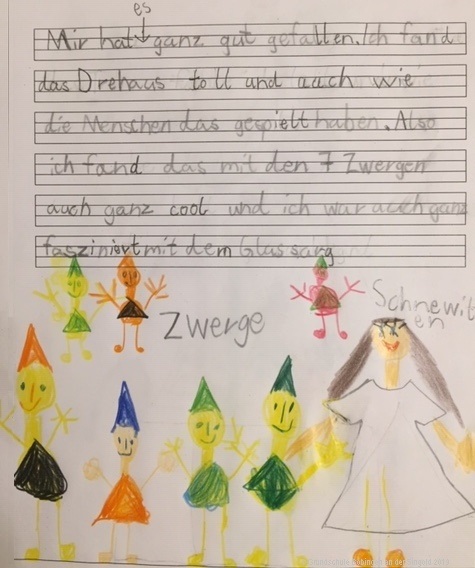 es
Mir hat ganz gut gefallen. Ich fand
das Drehaus toll und auch wie
die Menschen das gespielt haben. Also
ich fand das mit den 7 Zwergen
auch ganz cool und ich war auch ganz
fasziniert mit dem Glassarg
Zwerge
Schnewit
en